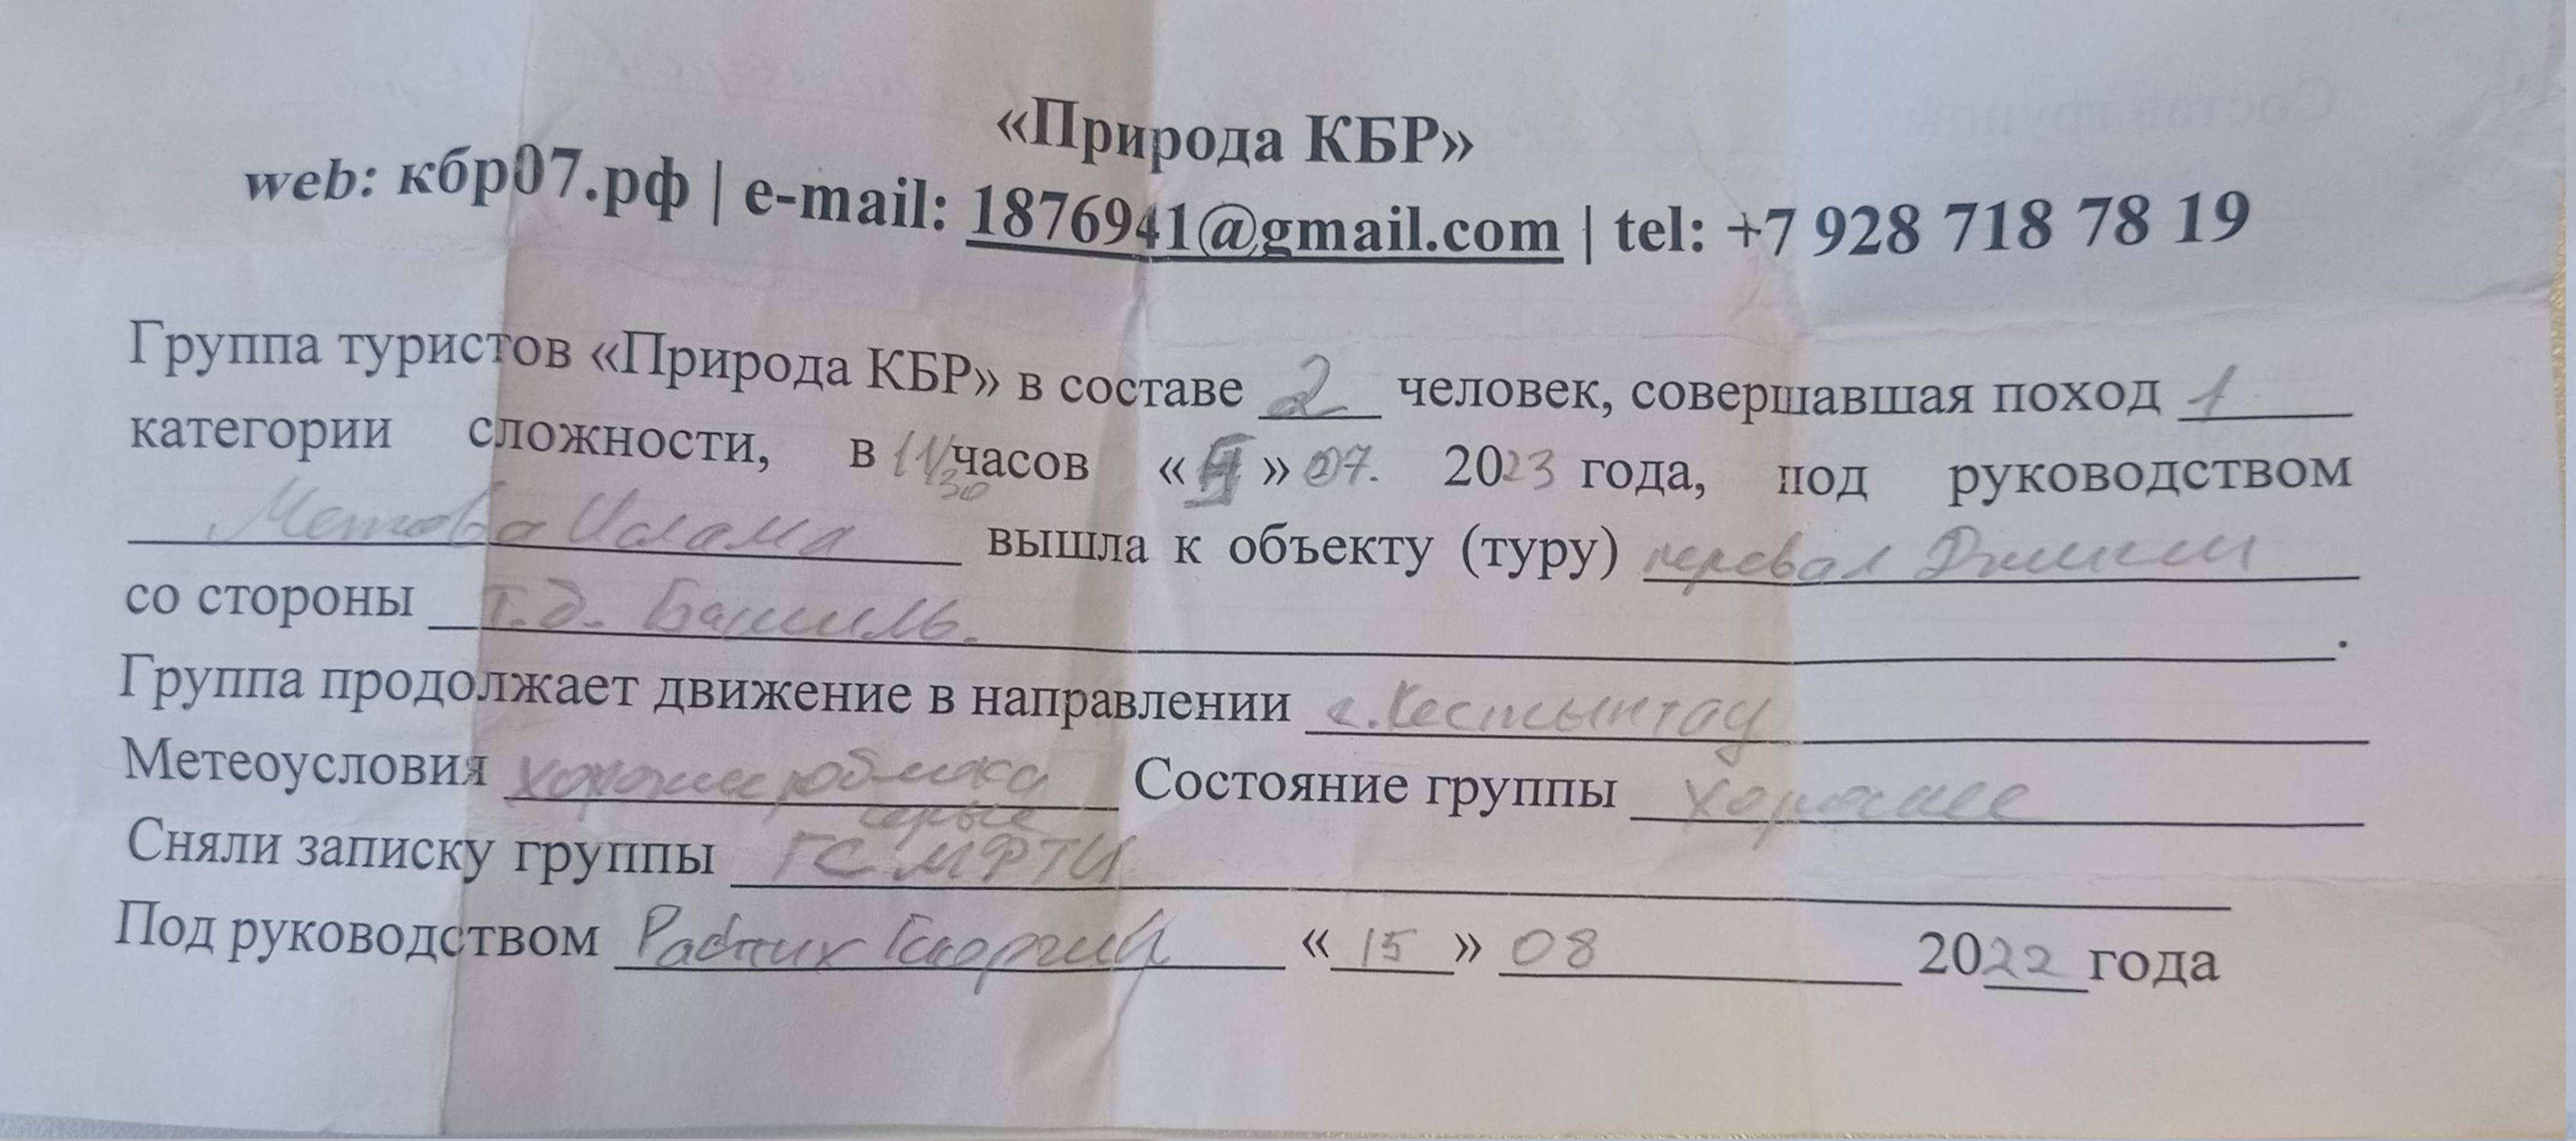 «Природа КБР»
web: кбр07.рф | e-mail: 1876941@gmail.com | tel: +7 928 718 78 19
Группа туристов «Природа КБР» в составе 2 человек, совершавшая поход 1
категории сложности, в 11 30 часов « » 07. 2023 года, под руководством
Метова Ислама вышла к объекту (туру) перевал
со стороны т.д. Башиль.
Группа продолжает движение в направлении г. Кестынтау
Метеоусловия хорошие, облака серые Состояние группы хорошее
Сняли записку группы ГС МФТИ
Под руководством Георгий «15» 08 2022 года